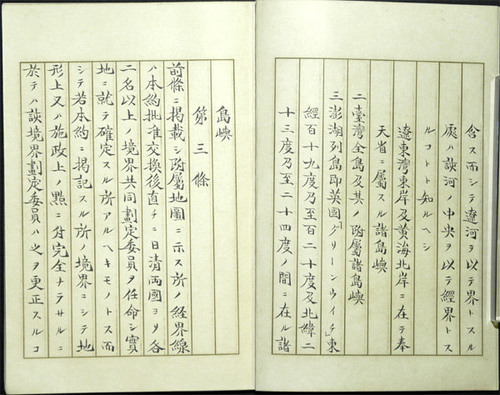 含ス而シテ遼河ヲ以テ界トスル
處ハ該河ノ中央ヲ以テ經界トス
ルコトト知ルヘシ
遼東灣東岸及黄海北岸ニ在テ奉
天省ニ屬スル諸島嶼
二臺灣全島及其ノ附屬諸島嶼
三澎湖列島即英國「グリーンウィチ」東
經百十九度乃至百二十度及北緯二
十三度乃至二十四度ノ間ニ在ル諸
島嶼
第三條
前條ニ掲載シ附屬地圖ニ示ス所ノ經界線
ハ本約批准交換後直チニ日清兩國ヨリ各
二名以上ノ境界共同劃定委員ヲ任命シ實
地ニ就テ確定スル所アルヘキモノトス而
シテ若本約ニ掲記スル所ノ境界ニシテ地
形上又ハ施政上ノ點ニ付完全ナラサルニ
於テハ該境界劃定委員ハ之ヲ更正スルコ